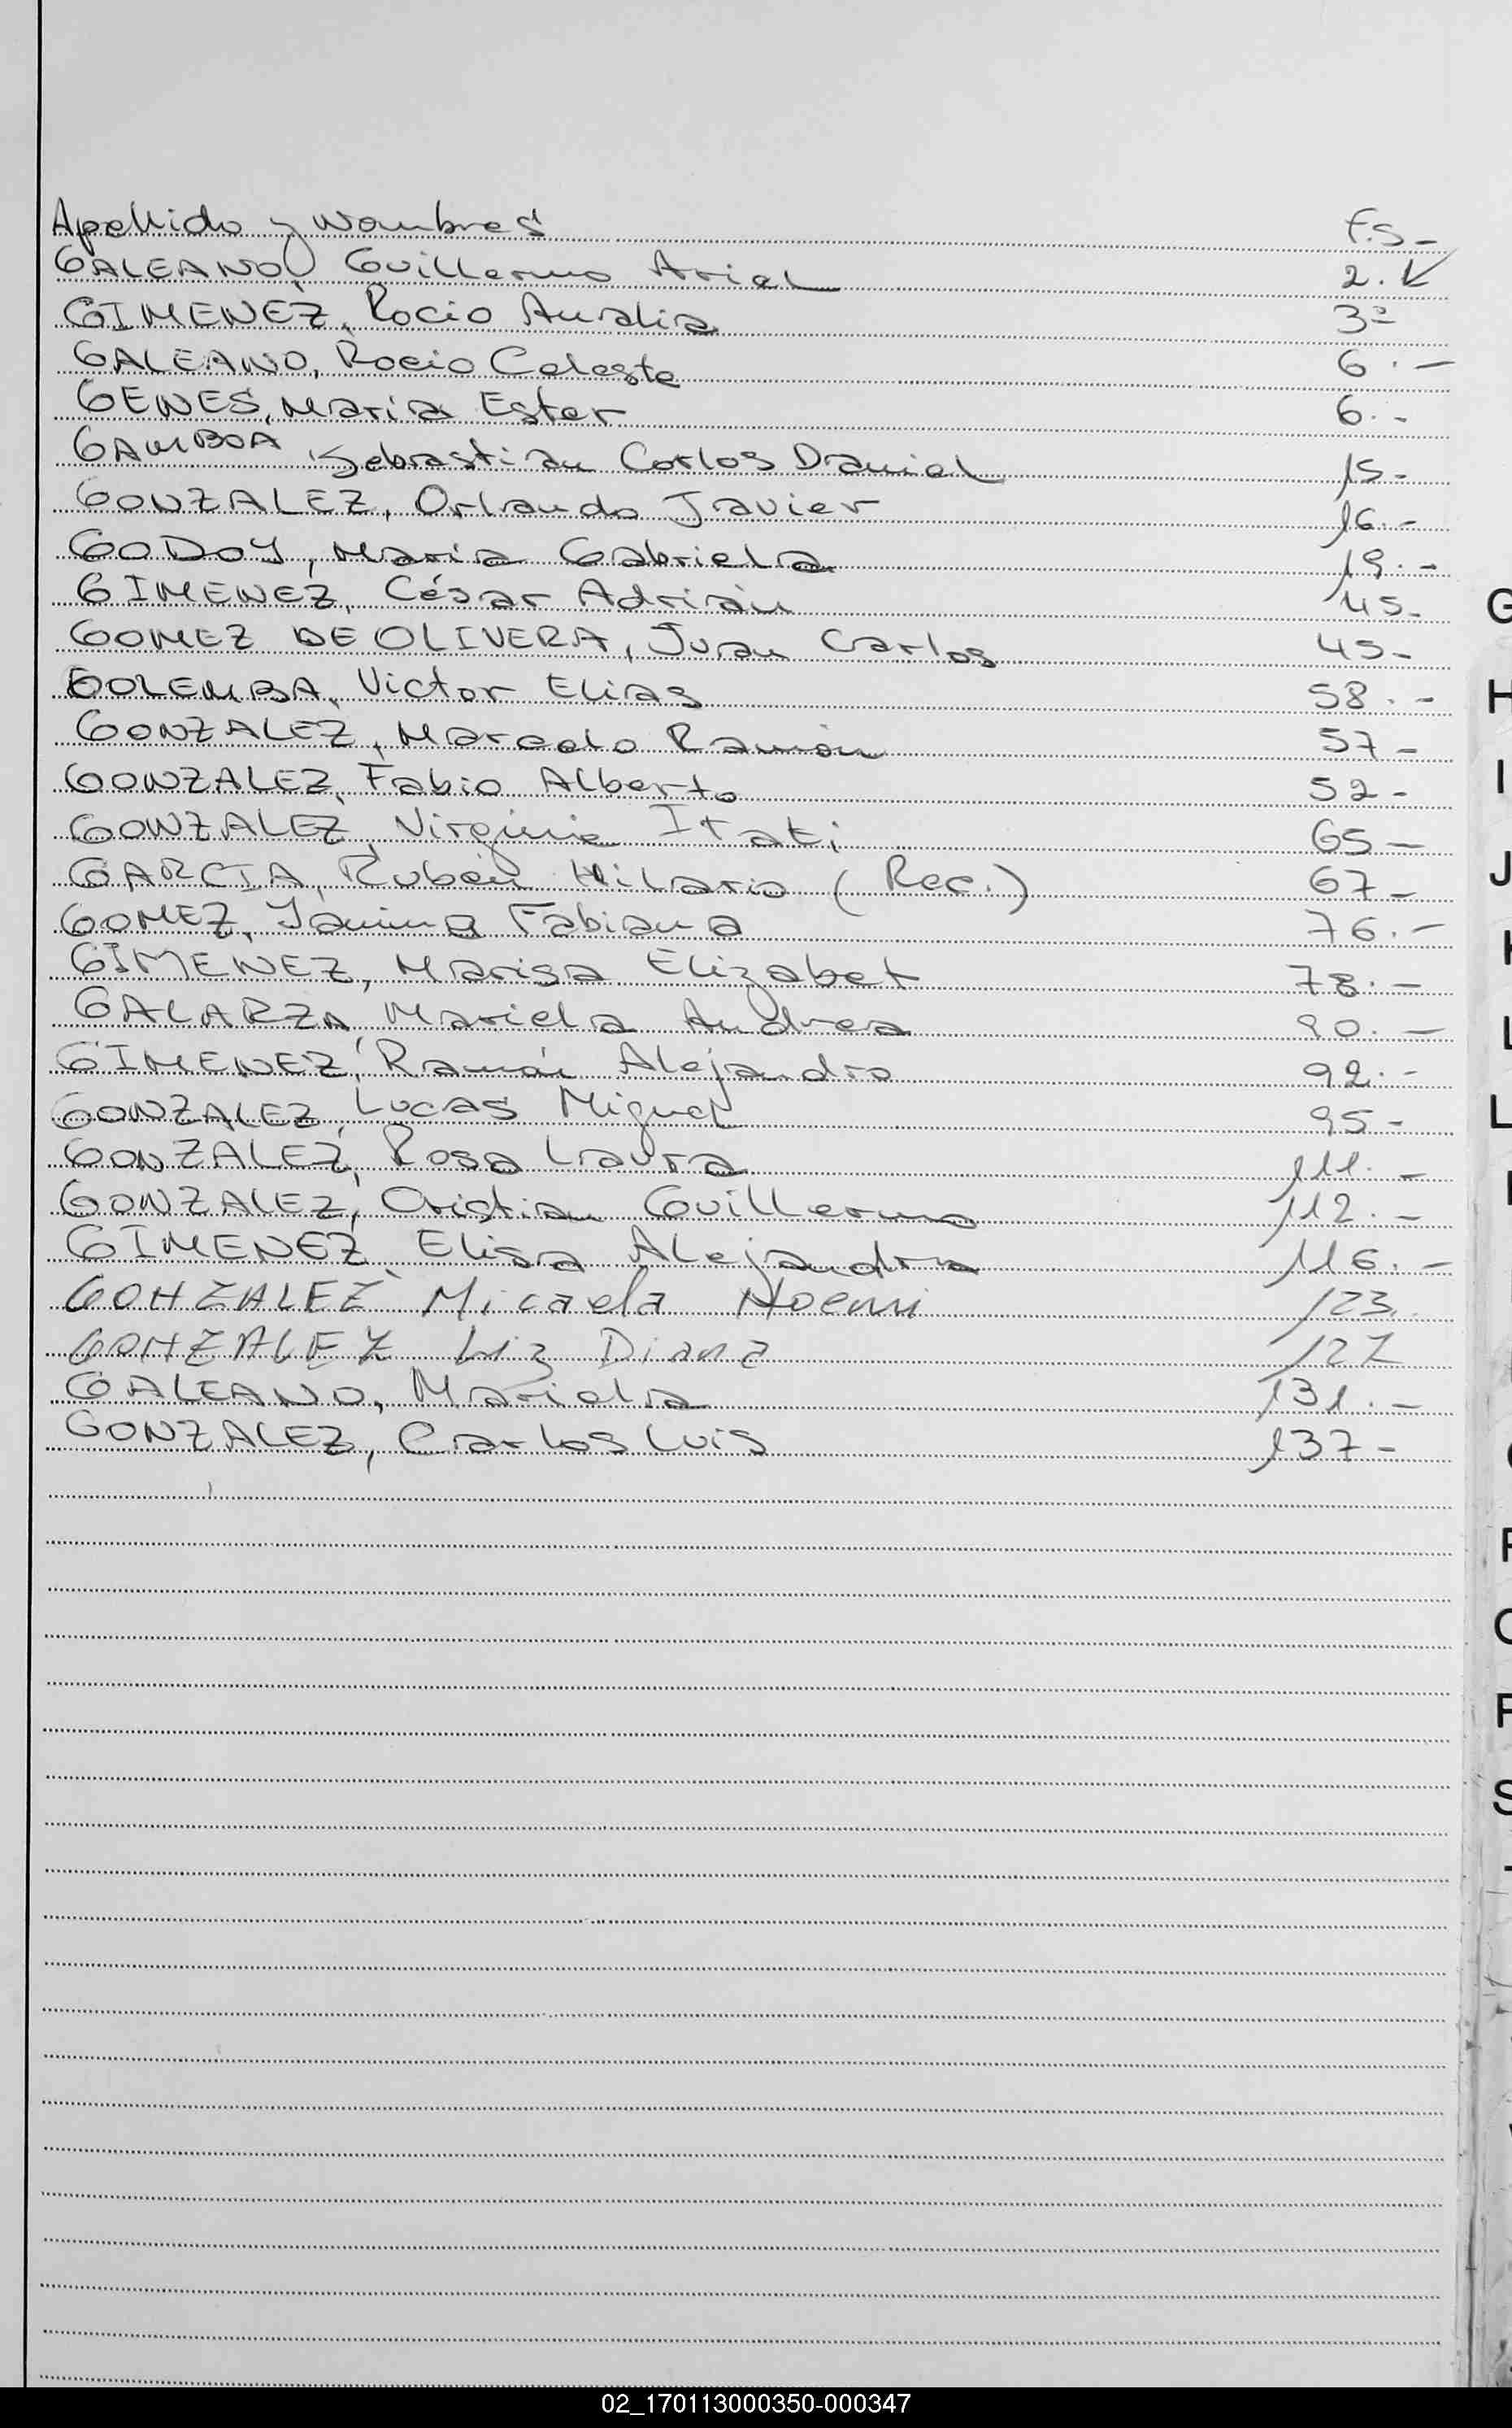 Apellido y Nombres FS-
GALEANO, Guillermo Ariel 2.-
GIMENEZ, Rocio Analia 3-
GALEANO, Rocio Celeste 6.-
GENES, Maria Ester 6.-
GAMBOA Sebastian Carlos Daniel 15-
GONZALEZ, Orlando Javier 16.-
GODOY, Maria Gabriela 19.-
GIMENEZ, César Adrián 45-
GOMEZ DE OLIVERA, Juan Carlos 45-
GOLEMBA, Victor Elias 58.-
GONZALEZ, Marcelo Ramón 57-
GONZALEZ, Fabio Alberto 52-
GONZALEZ, Virginia Itati 65-
GARCIA, Rubén Hilario (Rec.) 67-
GOMEZ, Yanina Fabiana 76.-
GIMENEZ, Marisa Elizabet 78.-
GALARZA, Mariela Andrea 90.-
GIMENEZ, Ramón Alejandro 92.-
GONZALEZ, Lucas Miguel 95-
GONZALEZ, Rosa Laura 111.-
GONZALEZ, Cristian Guillermo 112.-
GIMENEZ, Elisa Alejandra 116.-
GONZALEZ Micaela Noemi 123.
GONZALEZ Liz Diana 127
GALEANO, Mariela 131.-
GONZALEZ, Carlos Luis 137-
G
H
I
J
L
S
02_170113000350-000347